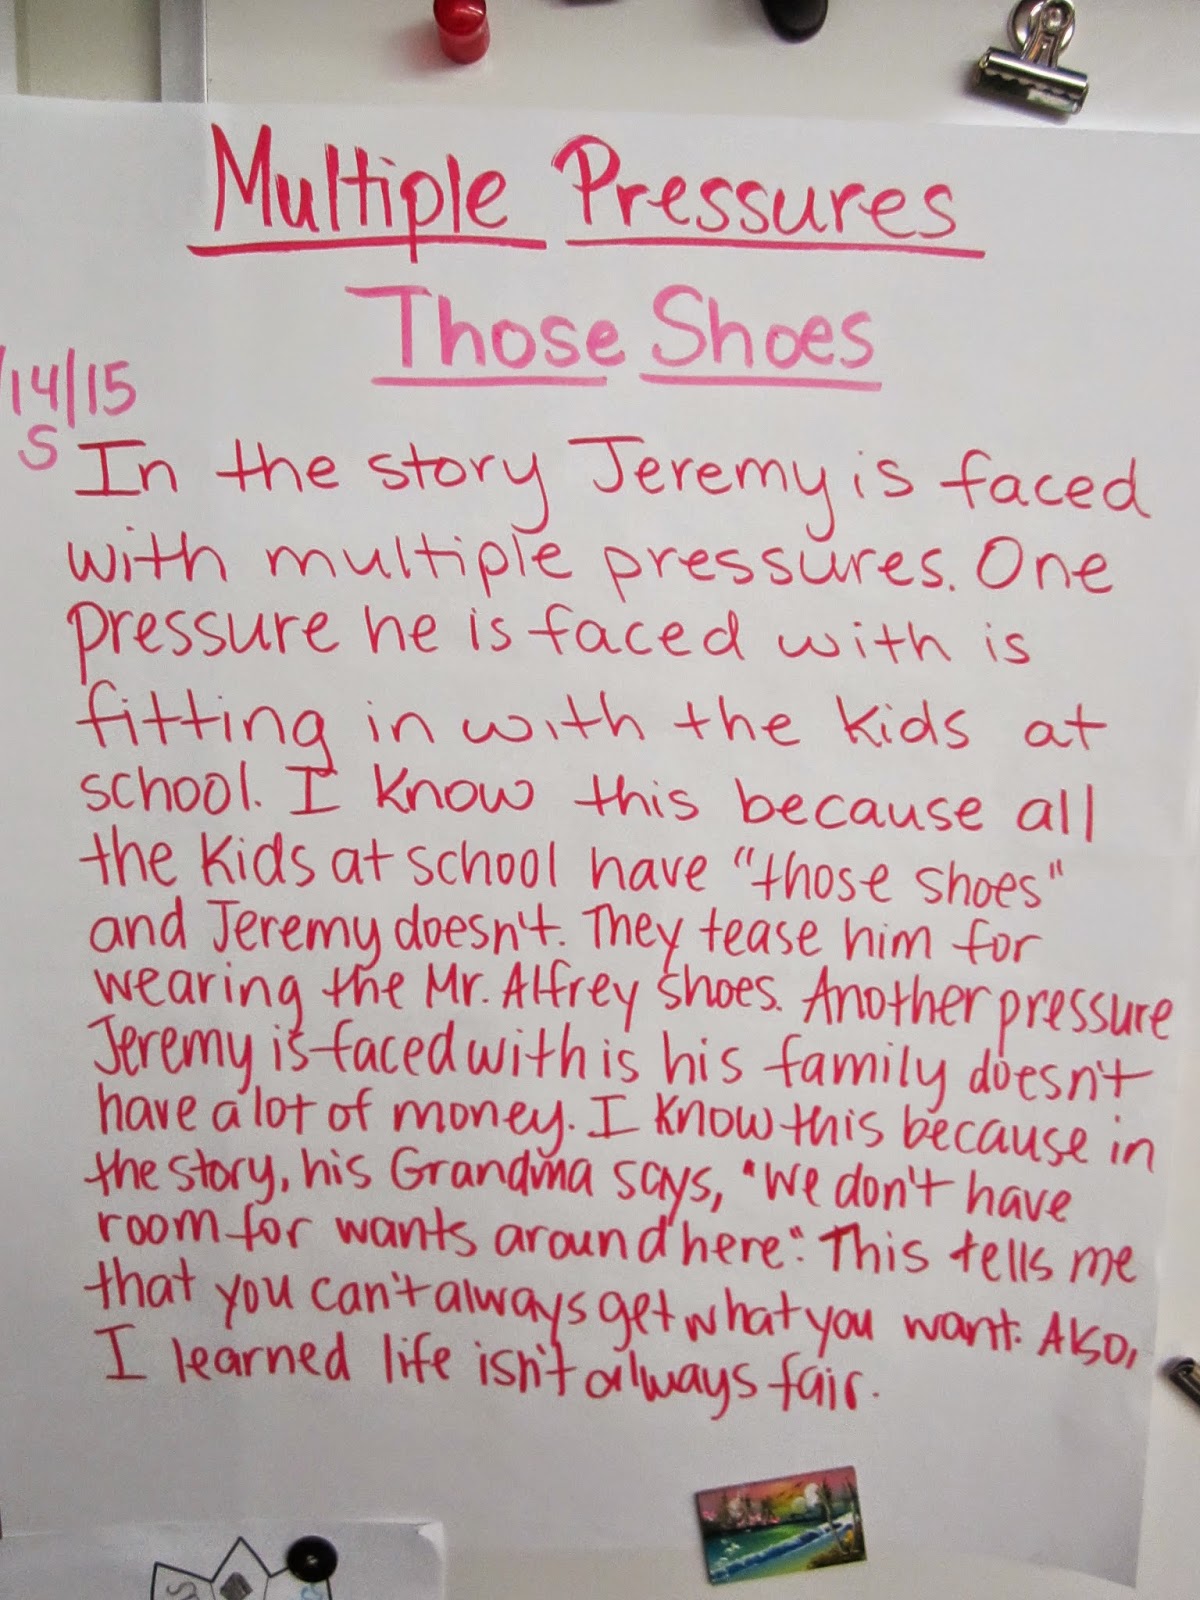 Multiple Pressures
Those Shoes
/14/15
S
In the story Jeremy is faced
with multiple pressures. One
pressure he is faced with is
fitting in with the kids at
school. I know this because all
the kids at school have "those shoes"
and Jeremy doesn't. They tease him for
wearing the Mr. Alfrey shoes. Another pressure
Jeremy is faced with is his family doesn't
have a lot of money. I know this because in
the story, his Grandma says, "We don't have
room for wants around here". This tells me
that you can't always get what you want. Also,
I learned life isn't always fair.